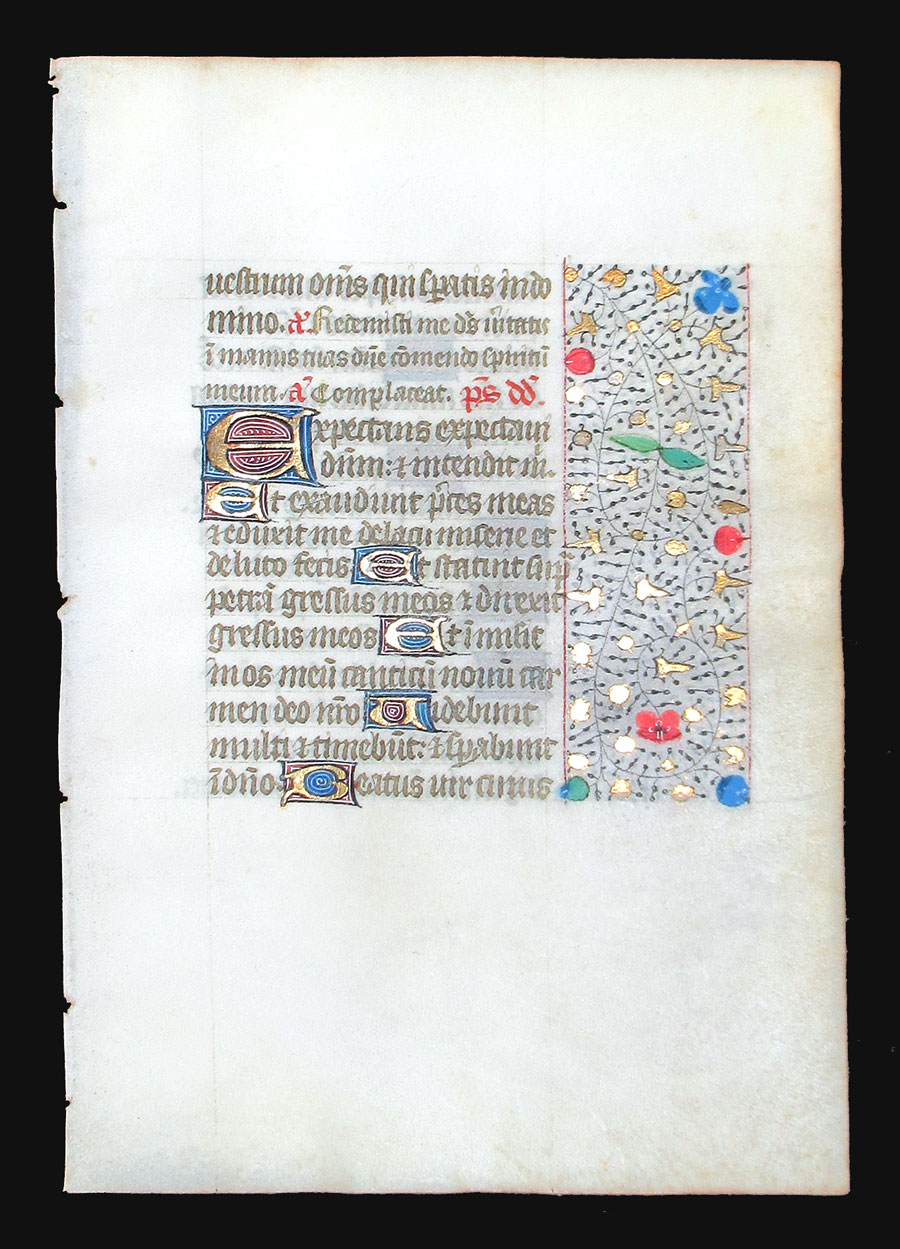 uestrum om̄s qui sꝑatis in do
mino. añ Redemisti me dn̄s ūitatis
ī manus tuas dn̄e cōmendo spiritū
meum. añ Complaceat. ps̄ dd̄.
Expectans expectaui
dn̄m: ⁊ intendit m̄.
Et exaudiuit p̄ces meas
⁊ eduxit me de lacu miserie et
de luto fecis Et statuit suꝑ
petrā gressus meos ⁊ direxit
gressus meos Et īmisit
ī nos meū canticū nouū car
men deo nr̄o Uidebunt
multi ⁊ timebūt: ⁊ sꝑabunt
ī dn̄o: Beatus uir cuius